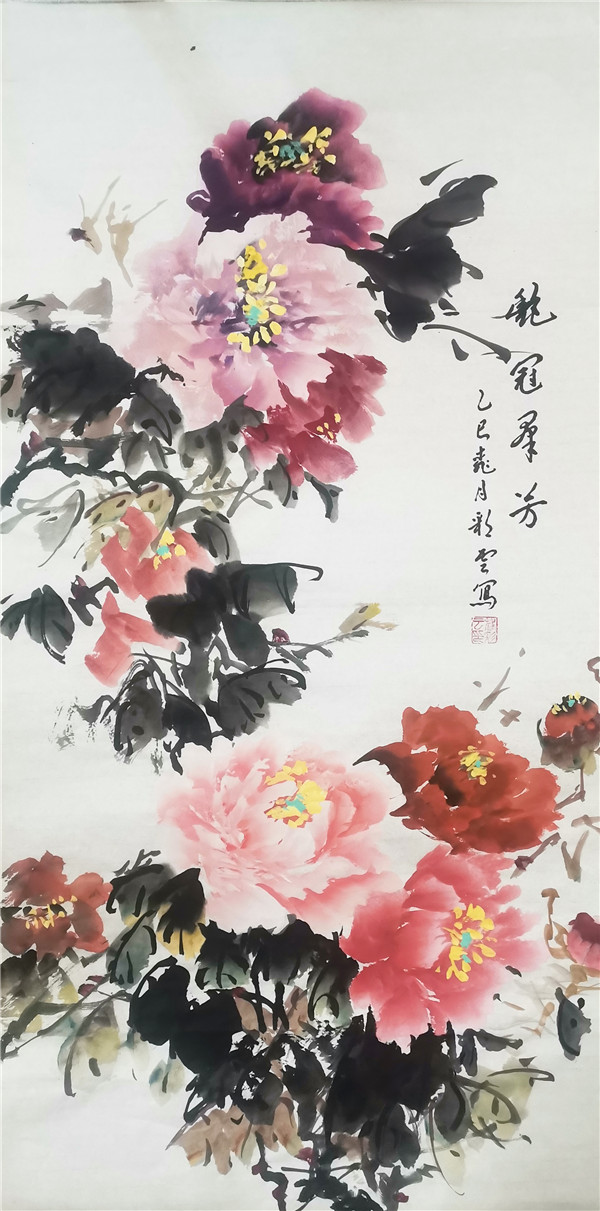 艳冠群芳
乙巳桃月彩云写